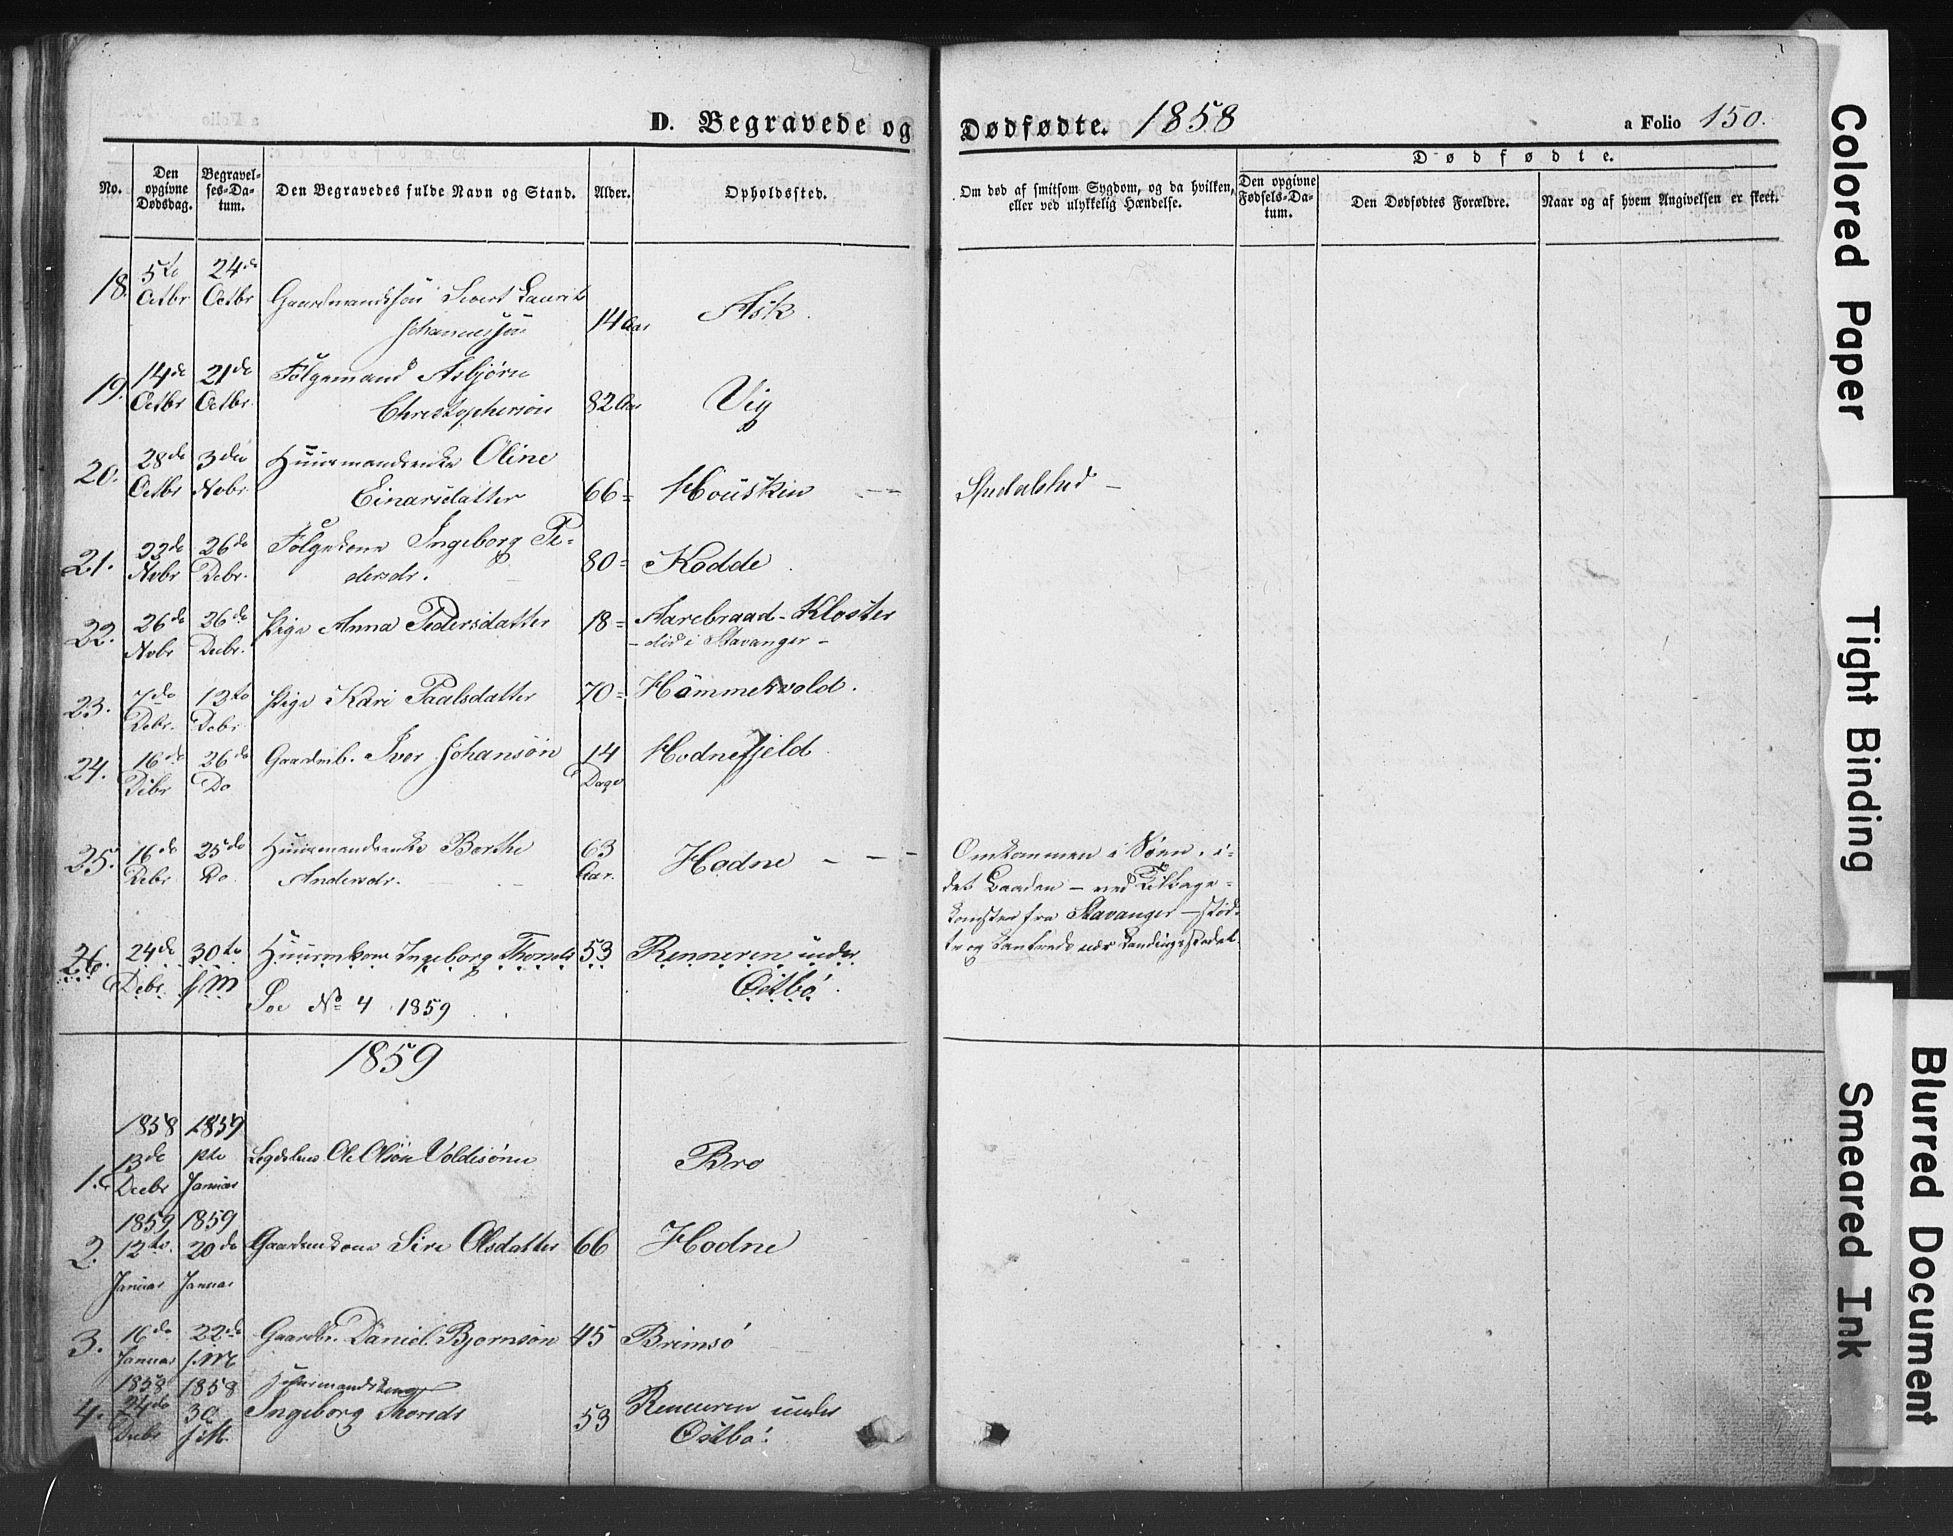 D. Begravede og Dødfødte. 1858
a Folio 150.
No.
Den opgivne Dødsdag.
Begravelses-Datum.
Den Begravedes fulde Navn og Stand.
Alder.
Opholdssted.
Om død af smitsom Sygdom, og da hvilken, eller ved ulykkelig Hændelse.
Dødfødte.
Den opgivne Fødsels-Datum.
Den Dødfødtes Forældre.
Naar og af hvem Angivelsen er skeet.
18. 5te Octbr 24de Octbr Gaardmandssøn Sivert Laurits
Johannessøn 14 Aar Ask.
19. 14de Octbr 21de Octbr Følgemand Asbjørn
Christophersøn 82 Aar Vig
20. 28de Octbr 3die Novbr Huusmandsenke Oline
Einarsdatter 66 = Houskin -- Spedalsked -
21. 22de Novbr 26de Debr. Følgekone Ingeborg Pe-
dersdr. 80 = Kodde
22. 26de Novbr 26de Decbr. Pige Anna Pedersdatter 18 = Aarebraad-Kloster
- død i Stavanger -
23. 7de Debr. 12te Debr Pige Kari Paalsdatter 70 = Hammersvold.
24. 16de Debr 26de Do Gaardmb. Iver Johansøn 14 Dage Hodnefjeld.
25. 16de Debr 25de Do Huusmandsenke Berthe
Andersdr. 63 Aar. Hodne - - -
Omkommen i Søen, i-
det Baaden - ved Tilbage-
komsten fra Stavanger - stød-
te og kantrede nær Landingsstedet.
26. 24de Debr. 30te s.M. Huusmkone Ingeborg Thoreds 53 Renneren under
Østbø.
See No 4 1859
1859
1858 1859
1. 13de Decbr 1ste Januar Legdslem Ole Olsøn Voldsønn Bro
1859 1859
2. 12te Januar 20de Januar Gaardmkone Siri Olsdatter 66 Hodne
3. 16de Januar 22de s.M. Gaardbr. Daniel Bjørnsøn 45 Brimsø
1858 1858 Huusmandskone
4. 24de Decbr 30 s.M. Ingeborg Thoreds 53 Renneren under
Østbø.
Colored Paper
Tight Binding
Blurred Document
Smeared Ink